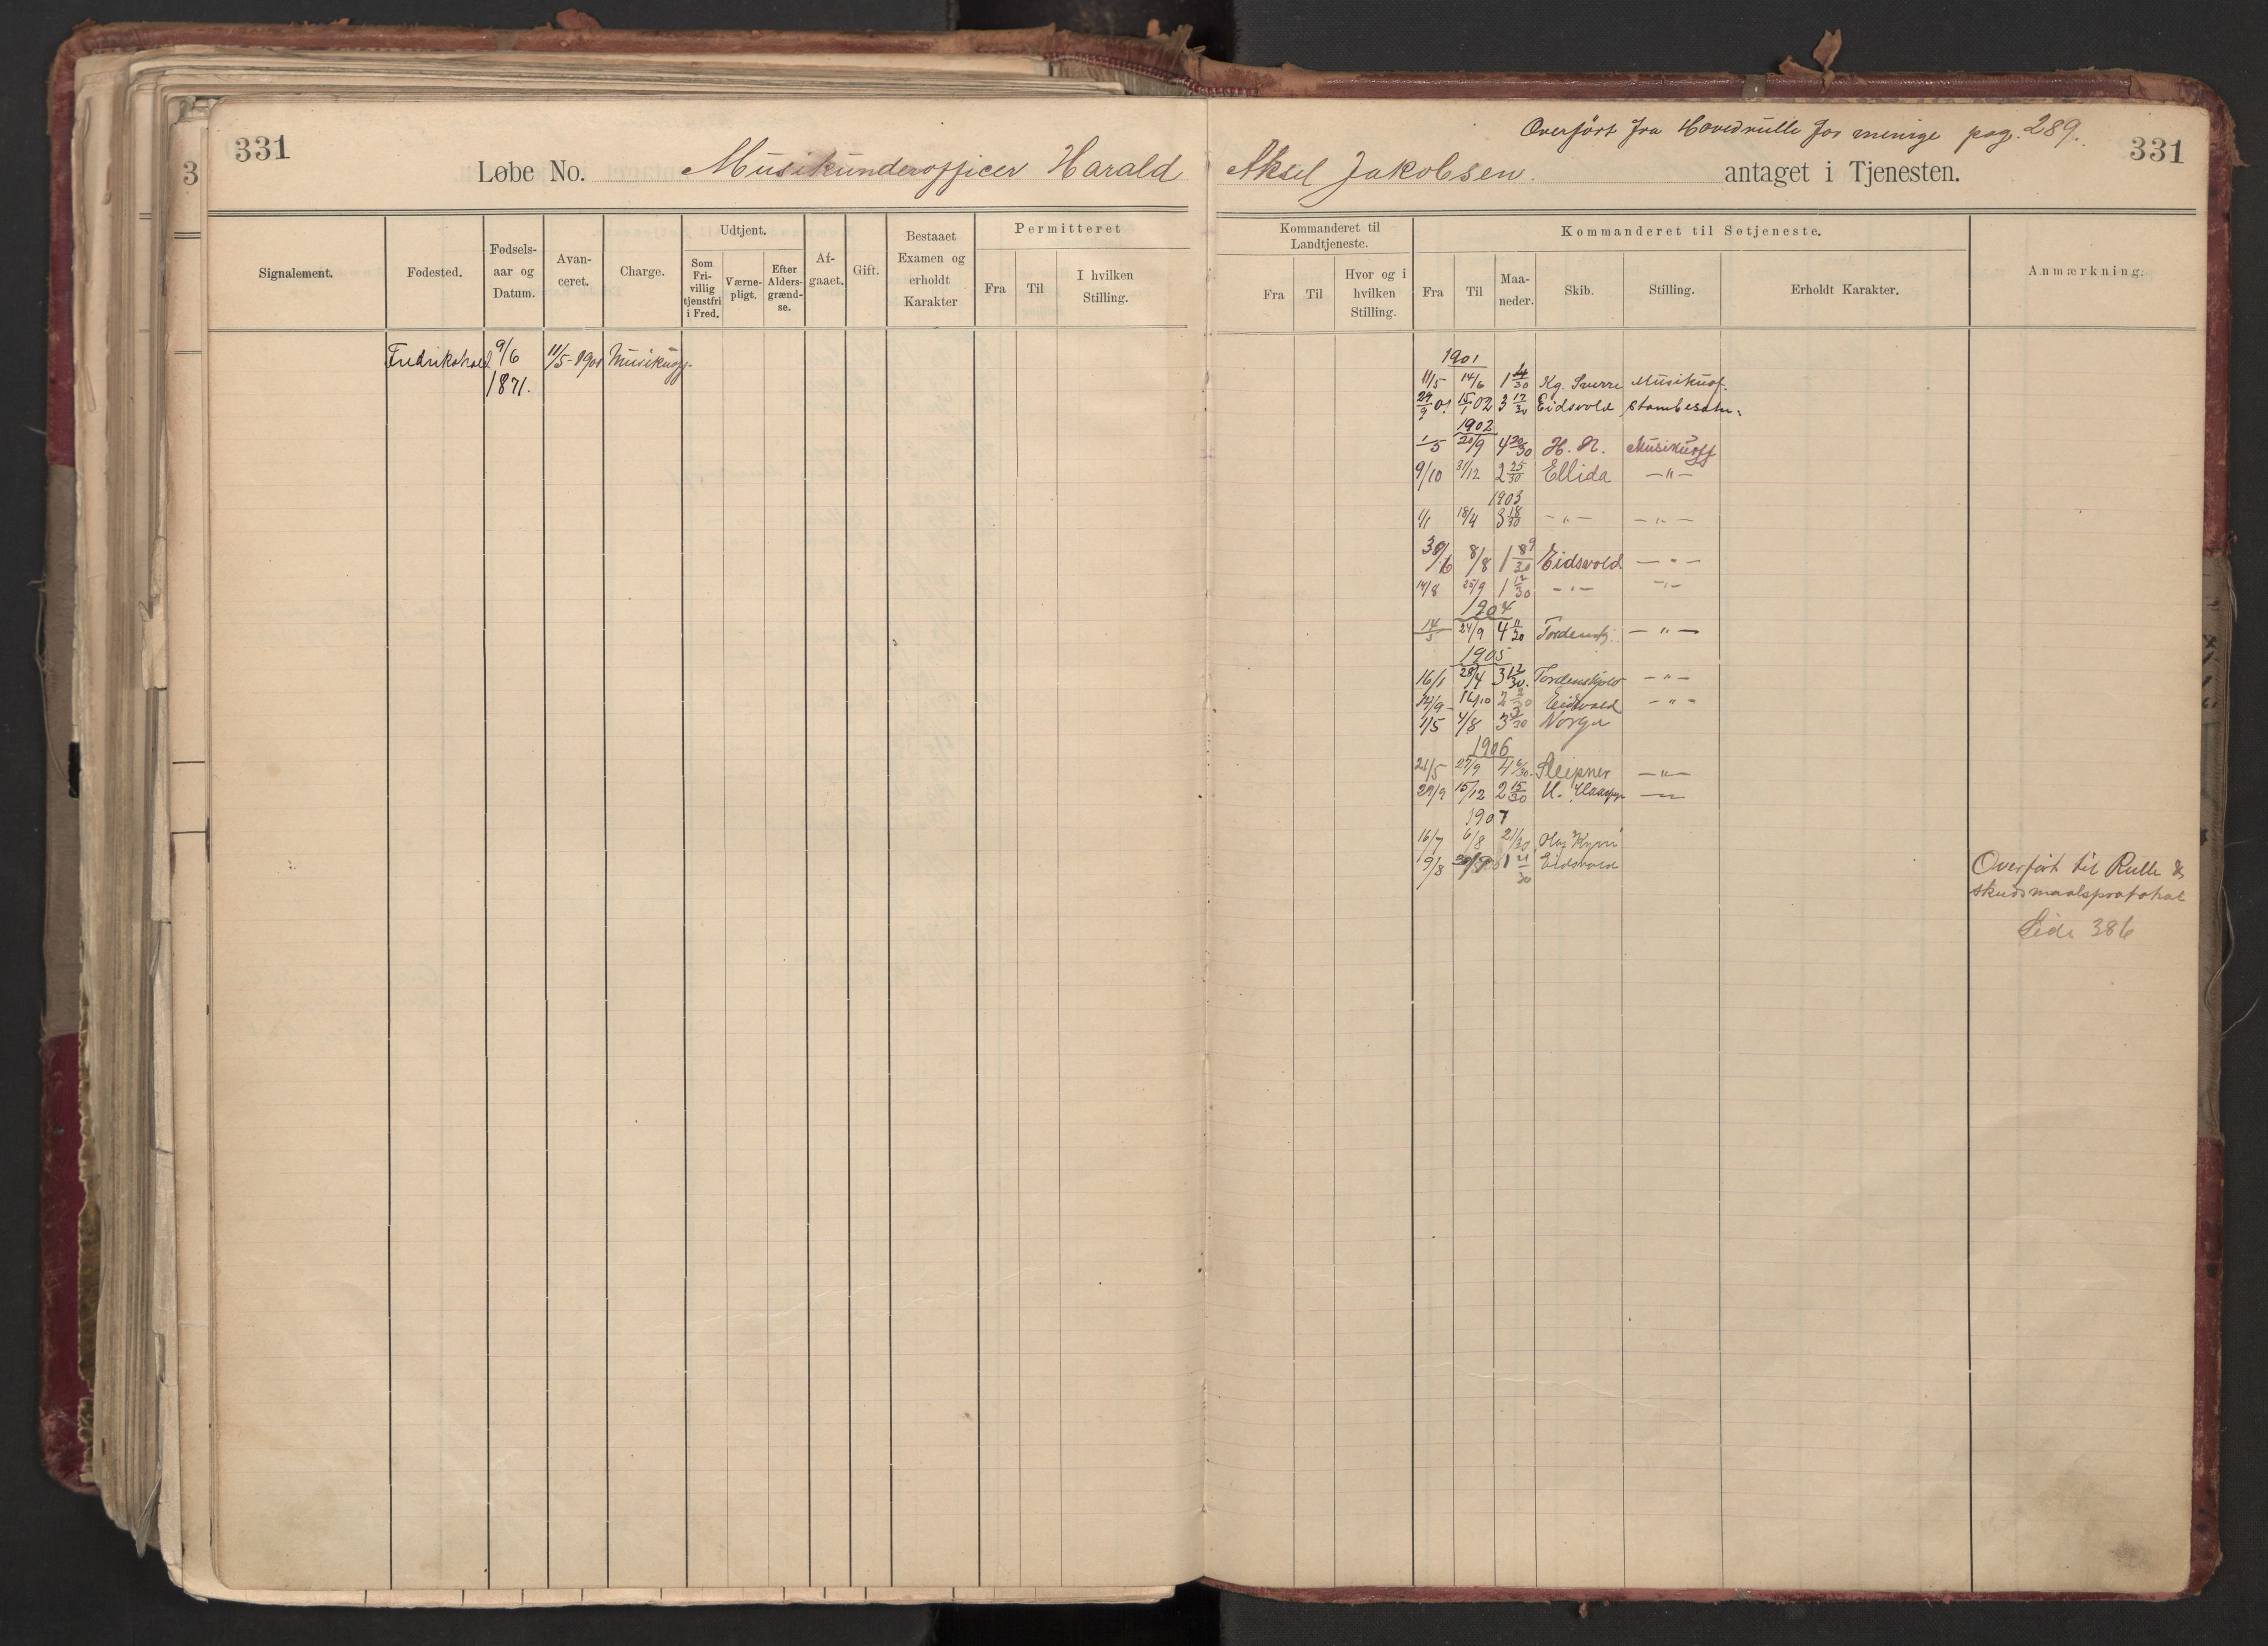 Overført fra Hovedrulle for menige pag. 289.
331
331
3
Løbe No. Musikunderofficer Harald Aksel Jakobsen. antaget i Tjenesten.
Signalement.
Fødested.
Fødsels-
aar og
Datum.
Avan-
ceret.
Charge.
Udtjent.
Som
Fri-
villig
tjenstfri
i Fred.
Værne-
pligt.
Efter
Alders-
grænd-
se.
Af-
gaaet.
Gift.
Bestaaet
Examen og
erholdt
Karakter
Permitteret
Fra
Til
I hvilken
Stilling.
Kommanderet til
Landtjeneste.
Fra
Til
Hvor og i
hvilken
Stilling.
Kommanderet til Søtjeneste.
Fra
Til
Maa-
neder.
Skib.
Stilling.
Erholdt Karakter.
Anmærkning.
Fredrikshald 9/6 11/5-1901 Musikuoff.
1871.
1901
11/5 14/6 1 4/30 Kg. Sverre Musikuof.
29/9 01 15/1 02 3 17/30 Eidsvold Stambesætn.
1902
1/5 20/9 4 20/30 H. N. Musikuoff
9/10 31/12 2 25/30 Ellida —"—
1903
1/1 18/4 3 18/30 —"— —"—
30/6 8/8 1 9/30 Eidsvold —"—
14/8 25/9 1 12/30 —"— —"—
1904
14/5 24/9 4 11/30 Tordenskj. —"—
1905
16/1 28/4 3 12/30. Tordenskjold —"—
14/9 16/10 2 /30 Eidsvold —"—
1/5 4/8 3 3/30 Norge
1906
21/5 27/9 4 6/30. Sleipner —"—
29/9 15/12 2 15/30 U. —"—
1907
16/7 6/8 21/30
9/8 30/9 1 21/30 Eidsvold
Overført til Rulle &
skudsmaalsprotokol
Side 386